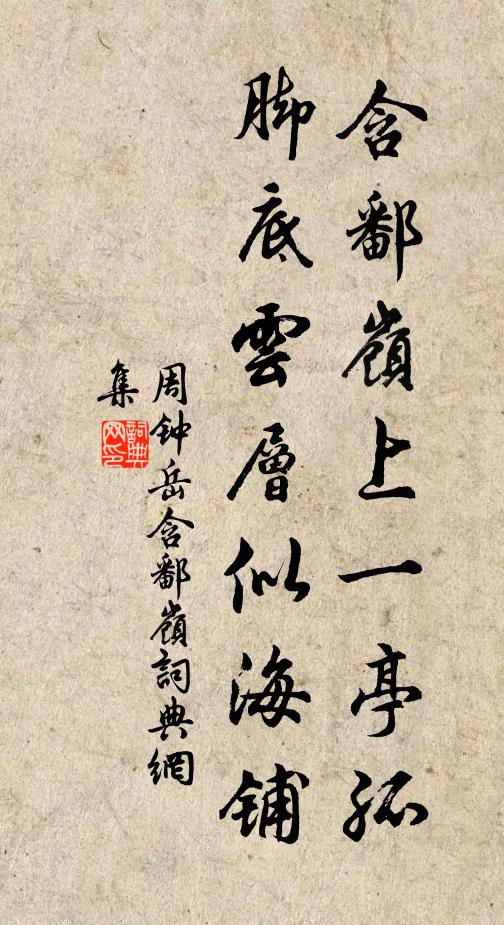 含鄱嶺上一亭孤
脚底雲層似海鋪
周钟岳含鄱嶺詞典網
集
詞典
网印